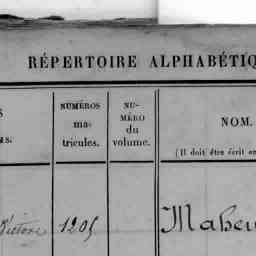 RÉPERTOIRE ALPHABÉTIQ
S
MS.
NUMÉROS
ma-
tricules.
NU-
MÉRO
du
volume.
NOM.
(Il doit être écrit en
Victore 1205 Maheu